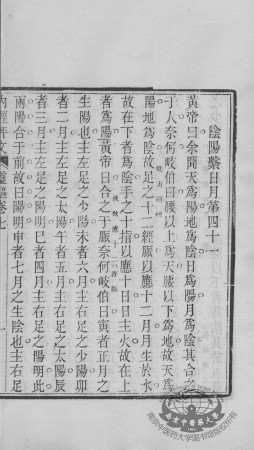 陰陽繫日月第四十一
黃帝曰余聞天爲陽地爲陰日爲陽月爲陰其合之
于人奈何岐伯曰腰以上爲天腰以下爲地故天爲
陽地爲陰故足之十二經脈以應十二月月生於水
故在下者爲陰手之十指以應十日日主火故在上
者爲陽黃帝曰合之于脈奈何岐伯曰寅者正月之
生陽也主左足之少陽未者六月主右足之少陽卯
者二月主左足之太陽午者五月主右足之太陽辰
者三月主左足之陽明巳者四月主右足之陽明此
兩陽合于前故曰陽明申者七月之生陰也主右足
內經評文 靈樞卷七 一
南京中医药大学图书馆版权所有